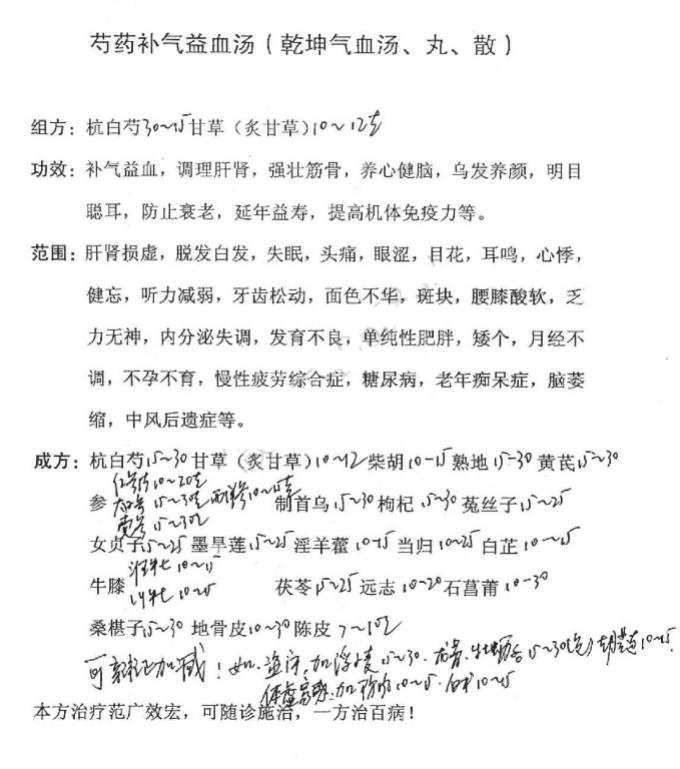 芍药补气益血汤（乾坤气血汤、丸、散）
组方：杭白芍30～15甘草（炙甘草）10～12克
功效：补气益血，调理肝肾，强壮筋骨，养心健脑，乌发养颜，明目
聪耳，防止衰老，延年益寿，提高机体免疫力等。
范围：肝肾损虚，脱发白发，失眠，头痛，眼涩，目花，耳鸣，心悸，
健忘，听力减弱，牙齿松动，面色不华，斑块，腰膝酸软，乏
力无神，内分泌失调，发育不良，单纯性肥胖，矮个，月经不
调，不孕不育，慢性疲劳综合症，糖尿病，老年痴呆症，脑萎
缩，中风后遗症等。
成方：杭白芍15～30甘草（炙甘草）10～12柴胡10-15熟地15-30黄芪15～30
10～20克
参 15～30克 西洋参10～15克 制首乌15～30枸杞15～30菟丝子15～25
15～30
女贞子15～25墨旱莲15～25淫羊藿10-15当归10～25白芷10～15
牛膝 10～15 茯苓15～25远志10-20石菖莆10-30
川牛七10～15
桑椹子15～30地骨皮10～30陈皮7～10
可 加减！如：盗汗，加浮小麦15～30．龙骨、牡蛎各15～30 10～15
加 10～15．白术10～15
本方治疗范广效宏，可随诊施治，一方治百病！